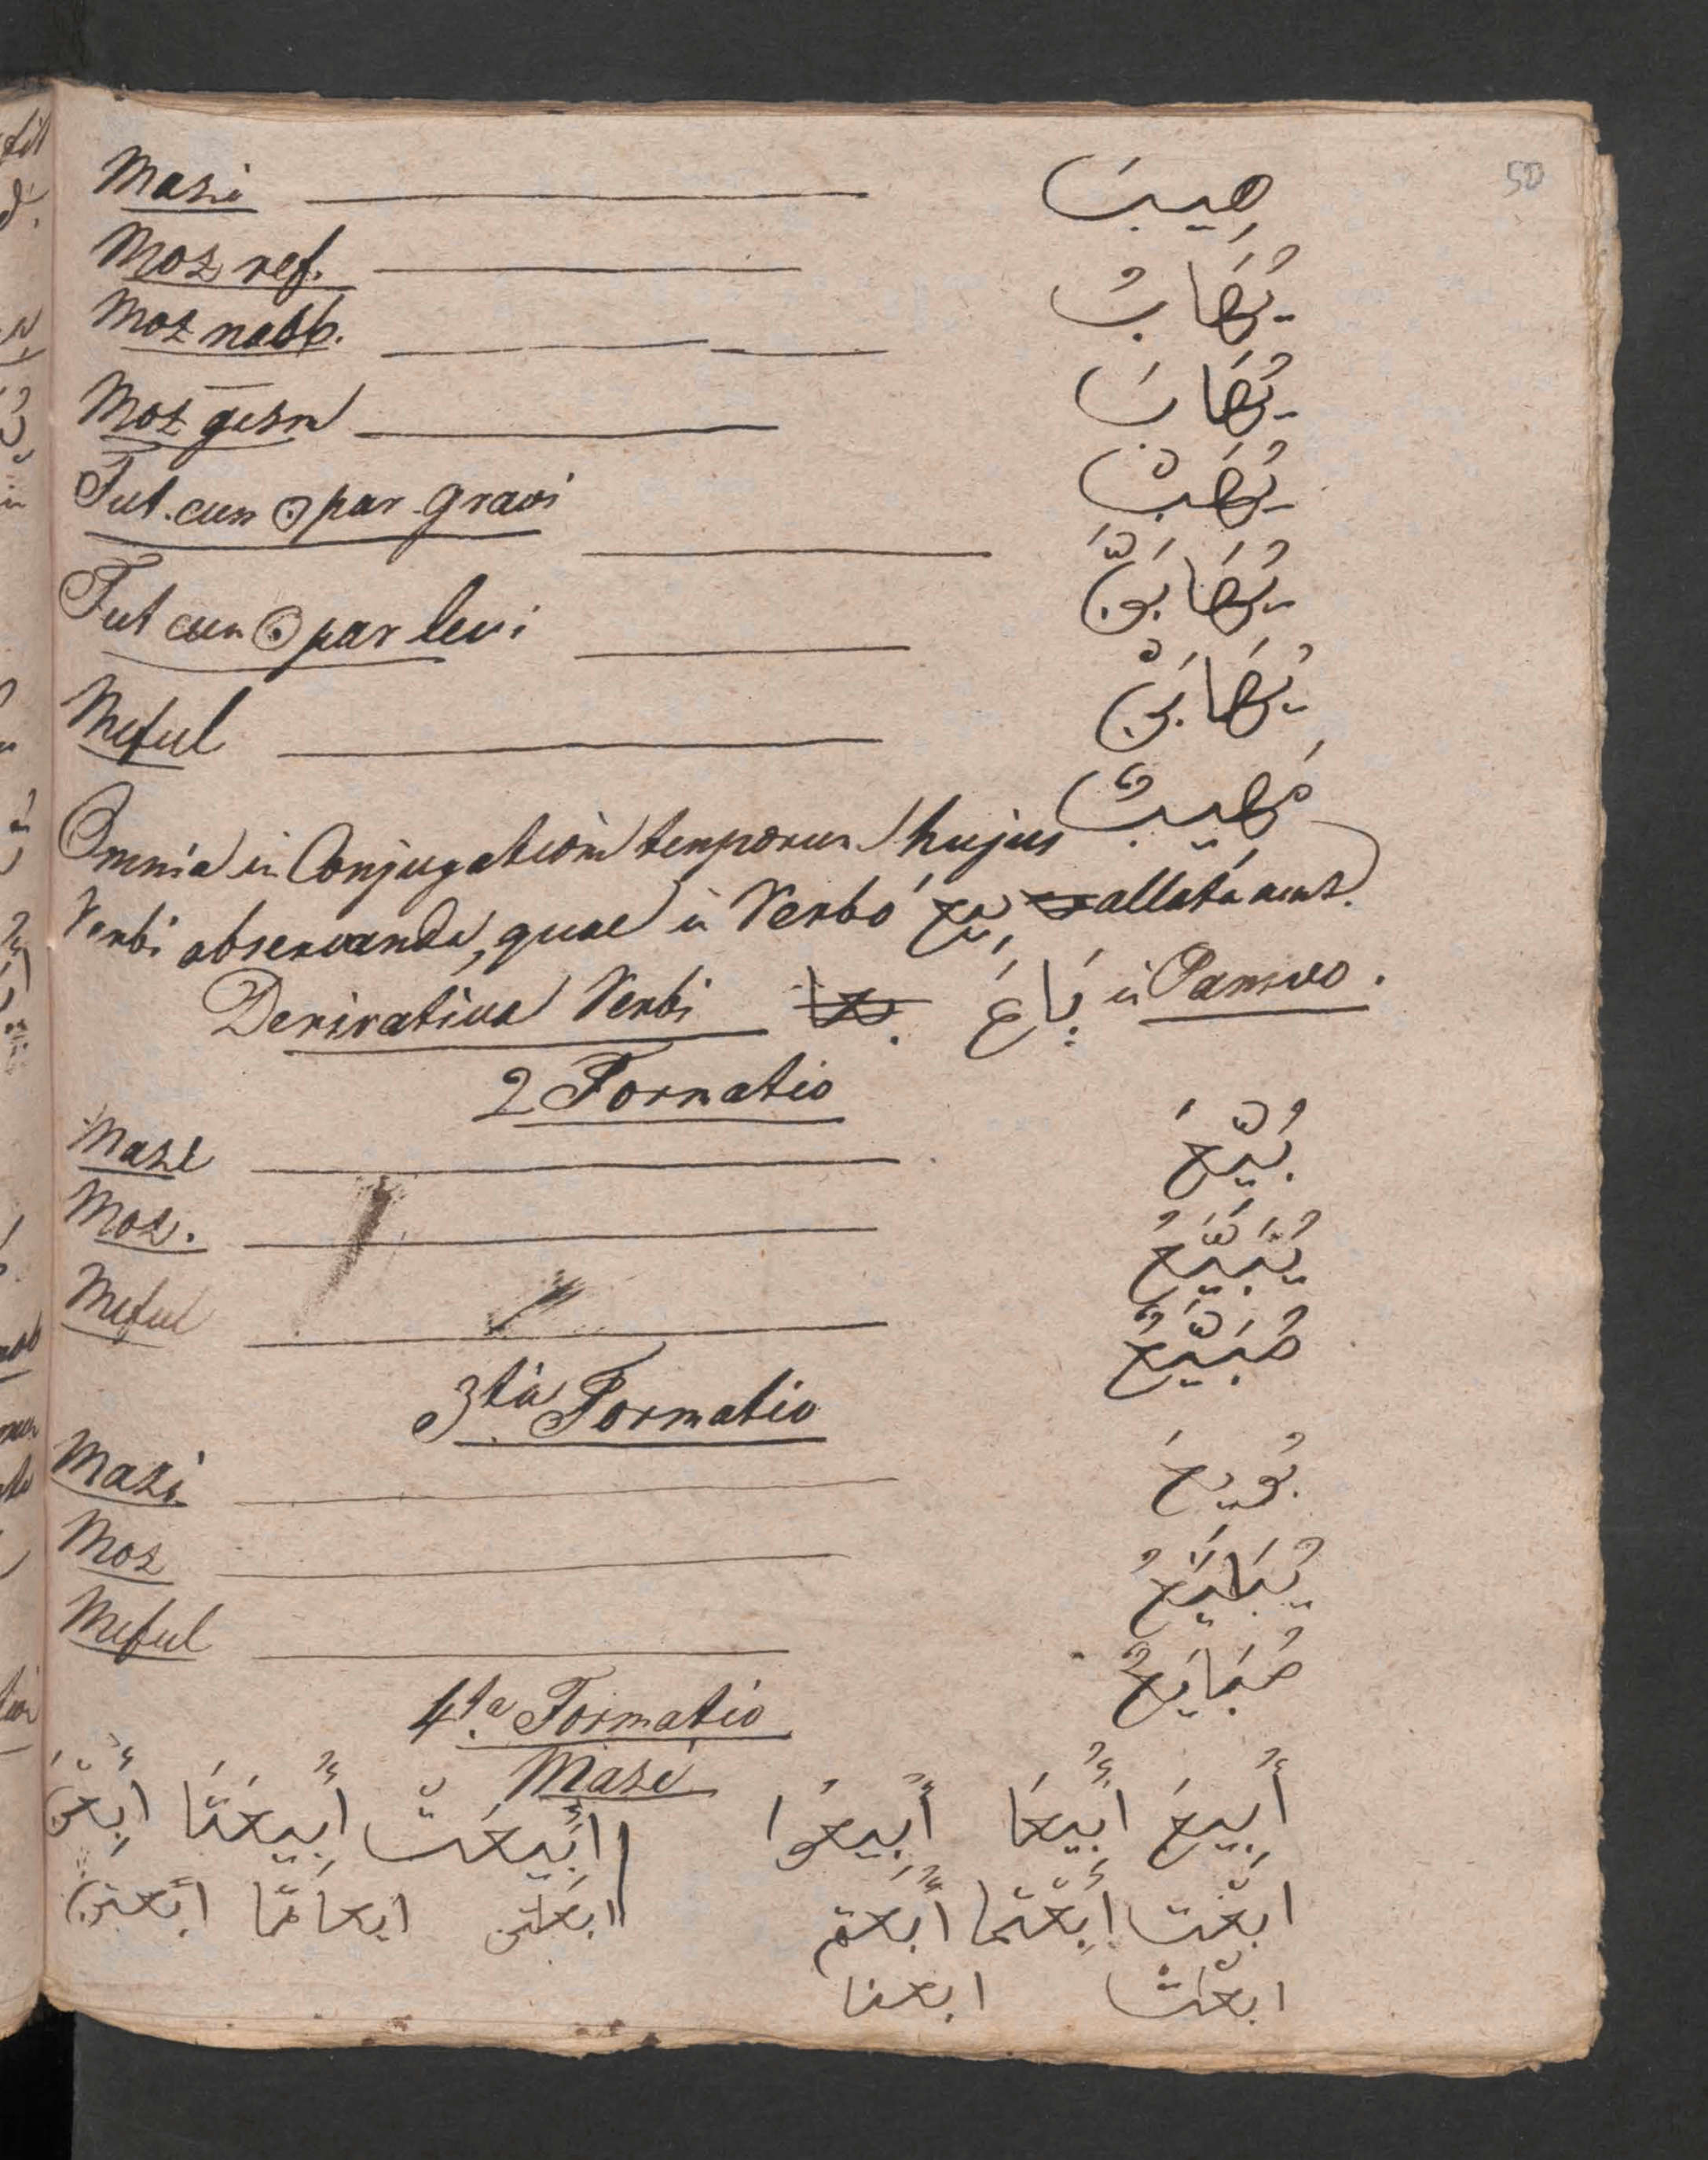 50
Mazi هِيبَ
Moz ref. يُهَابُ
Moz nasb. يُهَابَ
Moz gezm يُهَبْ
Fut. cum ن par gravi يُهَابَنَّ
Fut cum ن par levi يُهَابَنْ
Meful مَهِيبٌ
Omnia in Conjugatione temporum hujus
Verbi observanda, quae in Verbo بِيعَ allata sunt.
Derivativa Verbi بَاعَ in Passivo.
2 Formatio
Mazi بُيِّعَ
Moz. يُبَيَّعُ
Meful مُبَيَّعٌ
3tia Formatio
Mazi بُويِعَ
Moz يُبَايَعُ
Meful مُبَايَعٌ
4ta Formatio
Mazi
أُبِيعَ أُبِيعَا أُبِيعُوا أُبِيعَتْ أُبِيعَتَا أُبِعْنَ
ابعت أُبِعْتُما أُبعتم ابعتِ ابعتما ابعتن
ابعتُ ابعنا